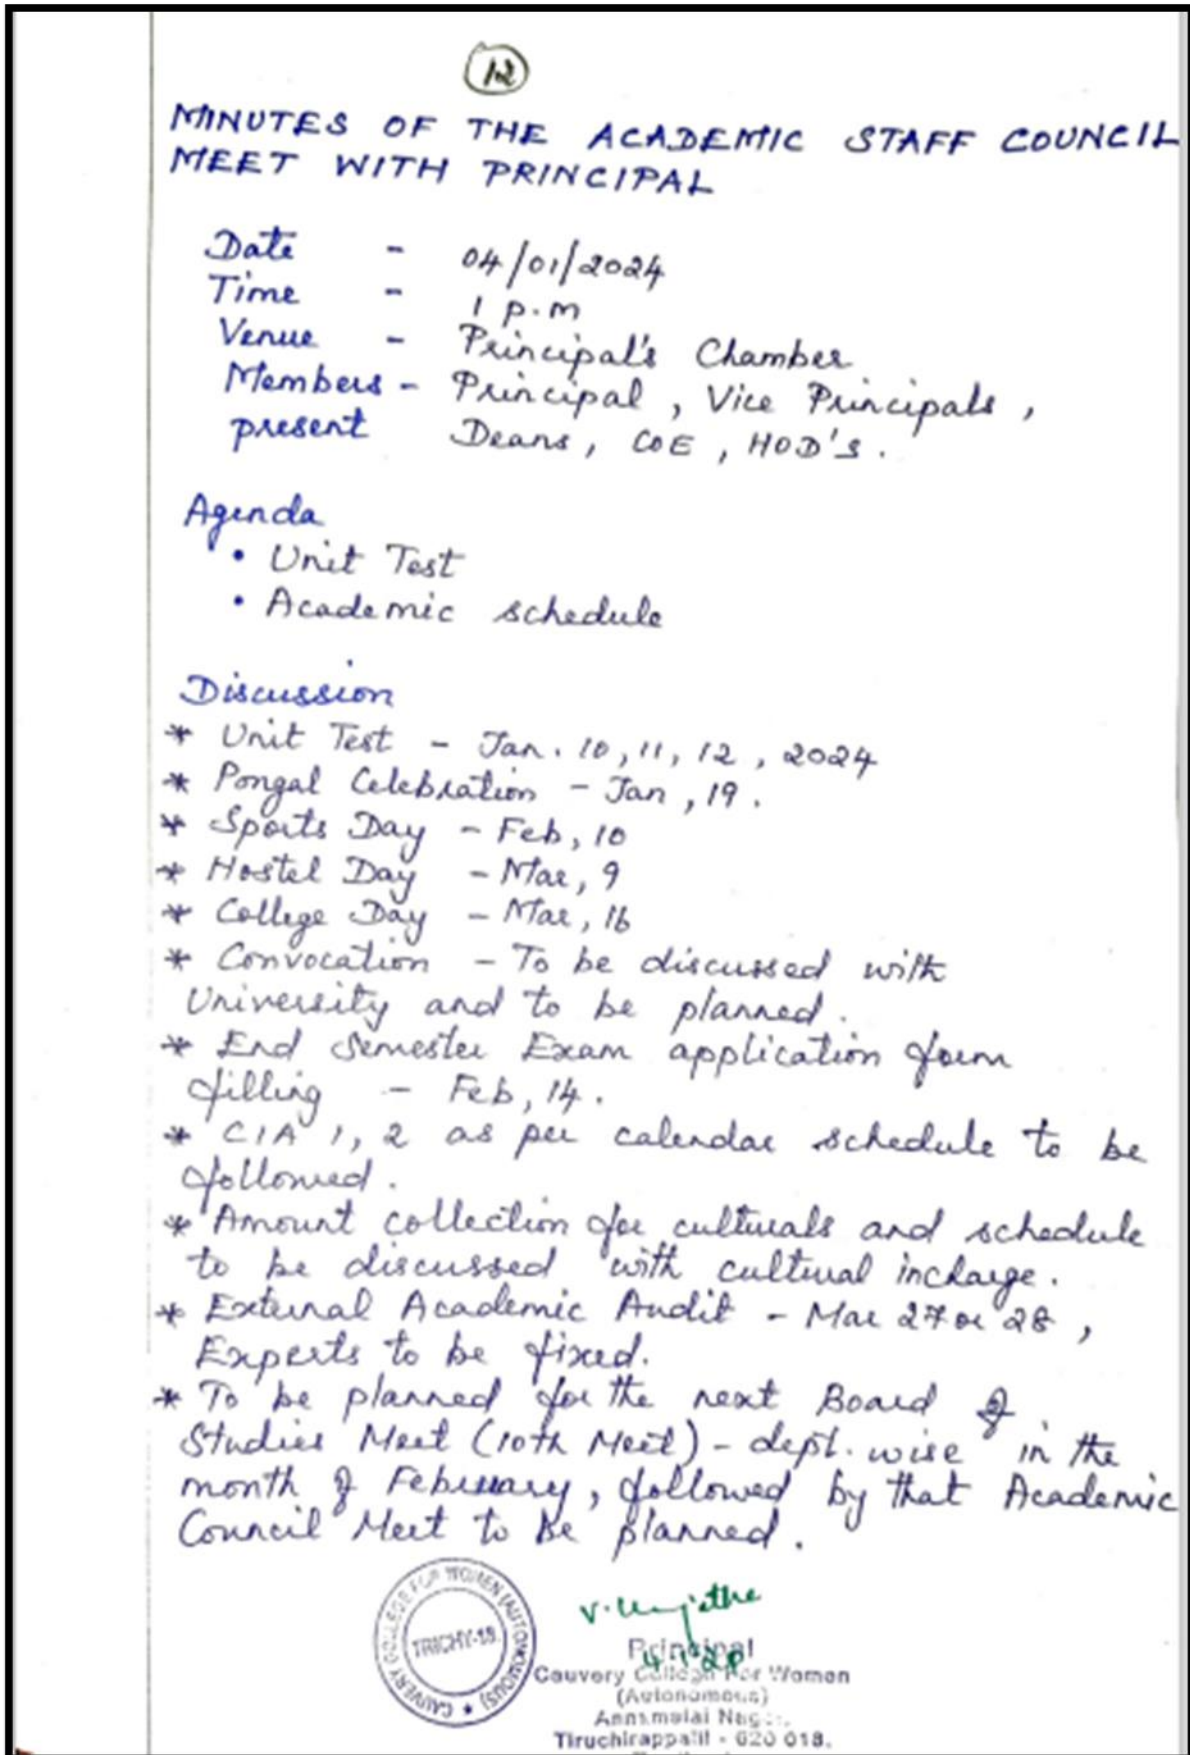 12
MINUTES OF THE ACADEMIC STAFF COUNCIL
MEET WITH PRINCIPAL
Date - 04/01/2024
Time - 1 p.m
Venue - Principal's Chamber
Members - Principal, Vice Principals,
present Deans, COE, HOD's.
Agenda
• Unit Test
• Academic schedule
Discussion
* Unit Test - Jan. 10, 11, 12, 2024
* Pongal Celebration - Jan, 19.
* Sports Day - Feb, 10
* Hostel Day - Mar, 9
* College Day - Mar, 16
* Convocation - To be discussed with
University and to be planned.
* End Semester Exam application form
filling - Feb, 14.
* CIA 1, 2 as per calendar schedule to be
followed.
* Amount collection for culturals and schedule
to be discussed with cultural incharge.
* External Academic Audit - Mar 27 or 28,
Experts to be fixed.
* To be planned for the next Board of
Studies Meet (10th Meet) - dept. wise in the
month of February, followed by that Academic
Council Meet to be planned.
CAUVERY COLLEGE FOR WOMEN (AUTONOMOUS)
TRICHY-18.
Principal
Cauvery College For Women
(Autonomous)
Annamalai Nagar,
Tiruchirappalli - 620 018.